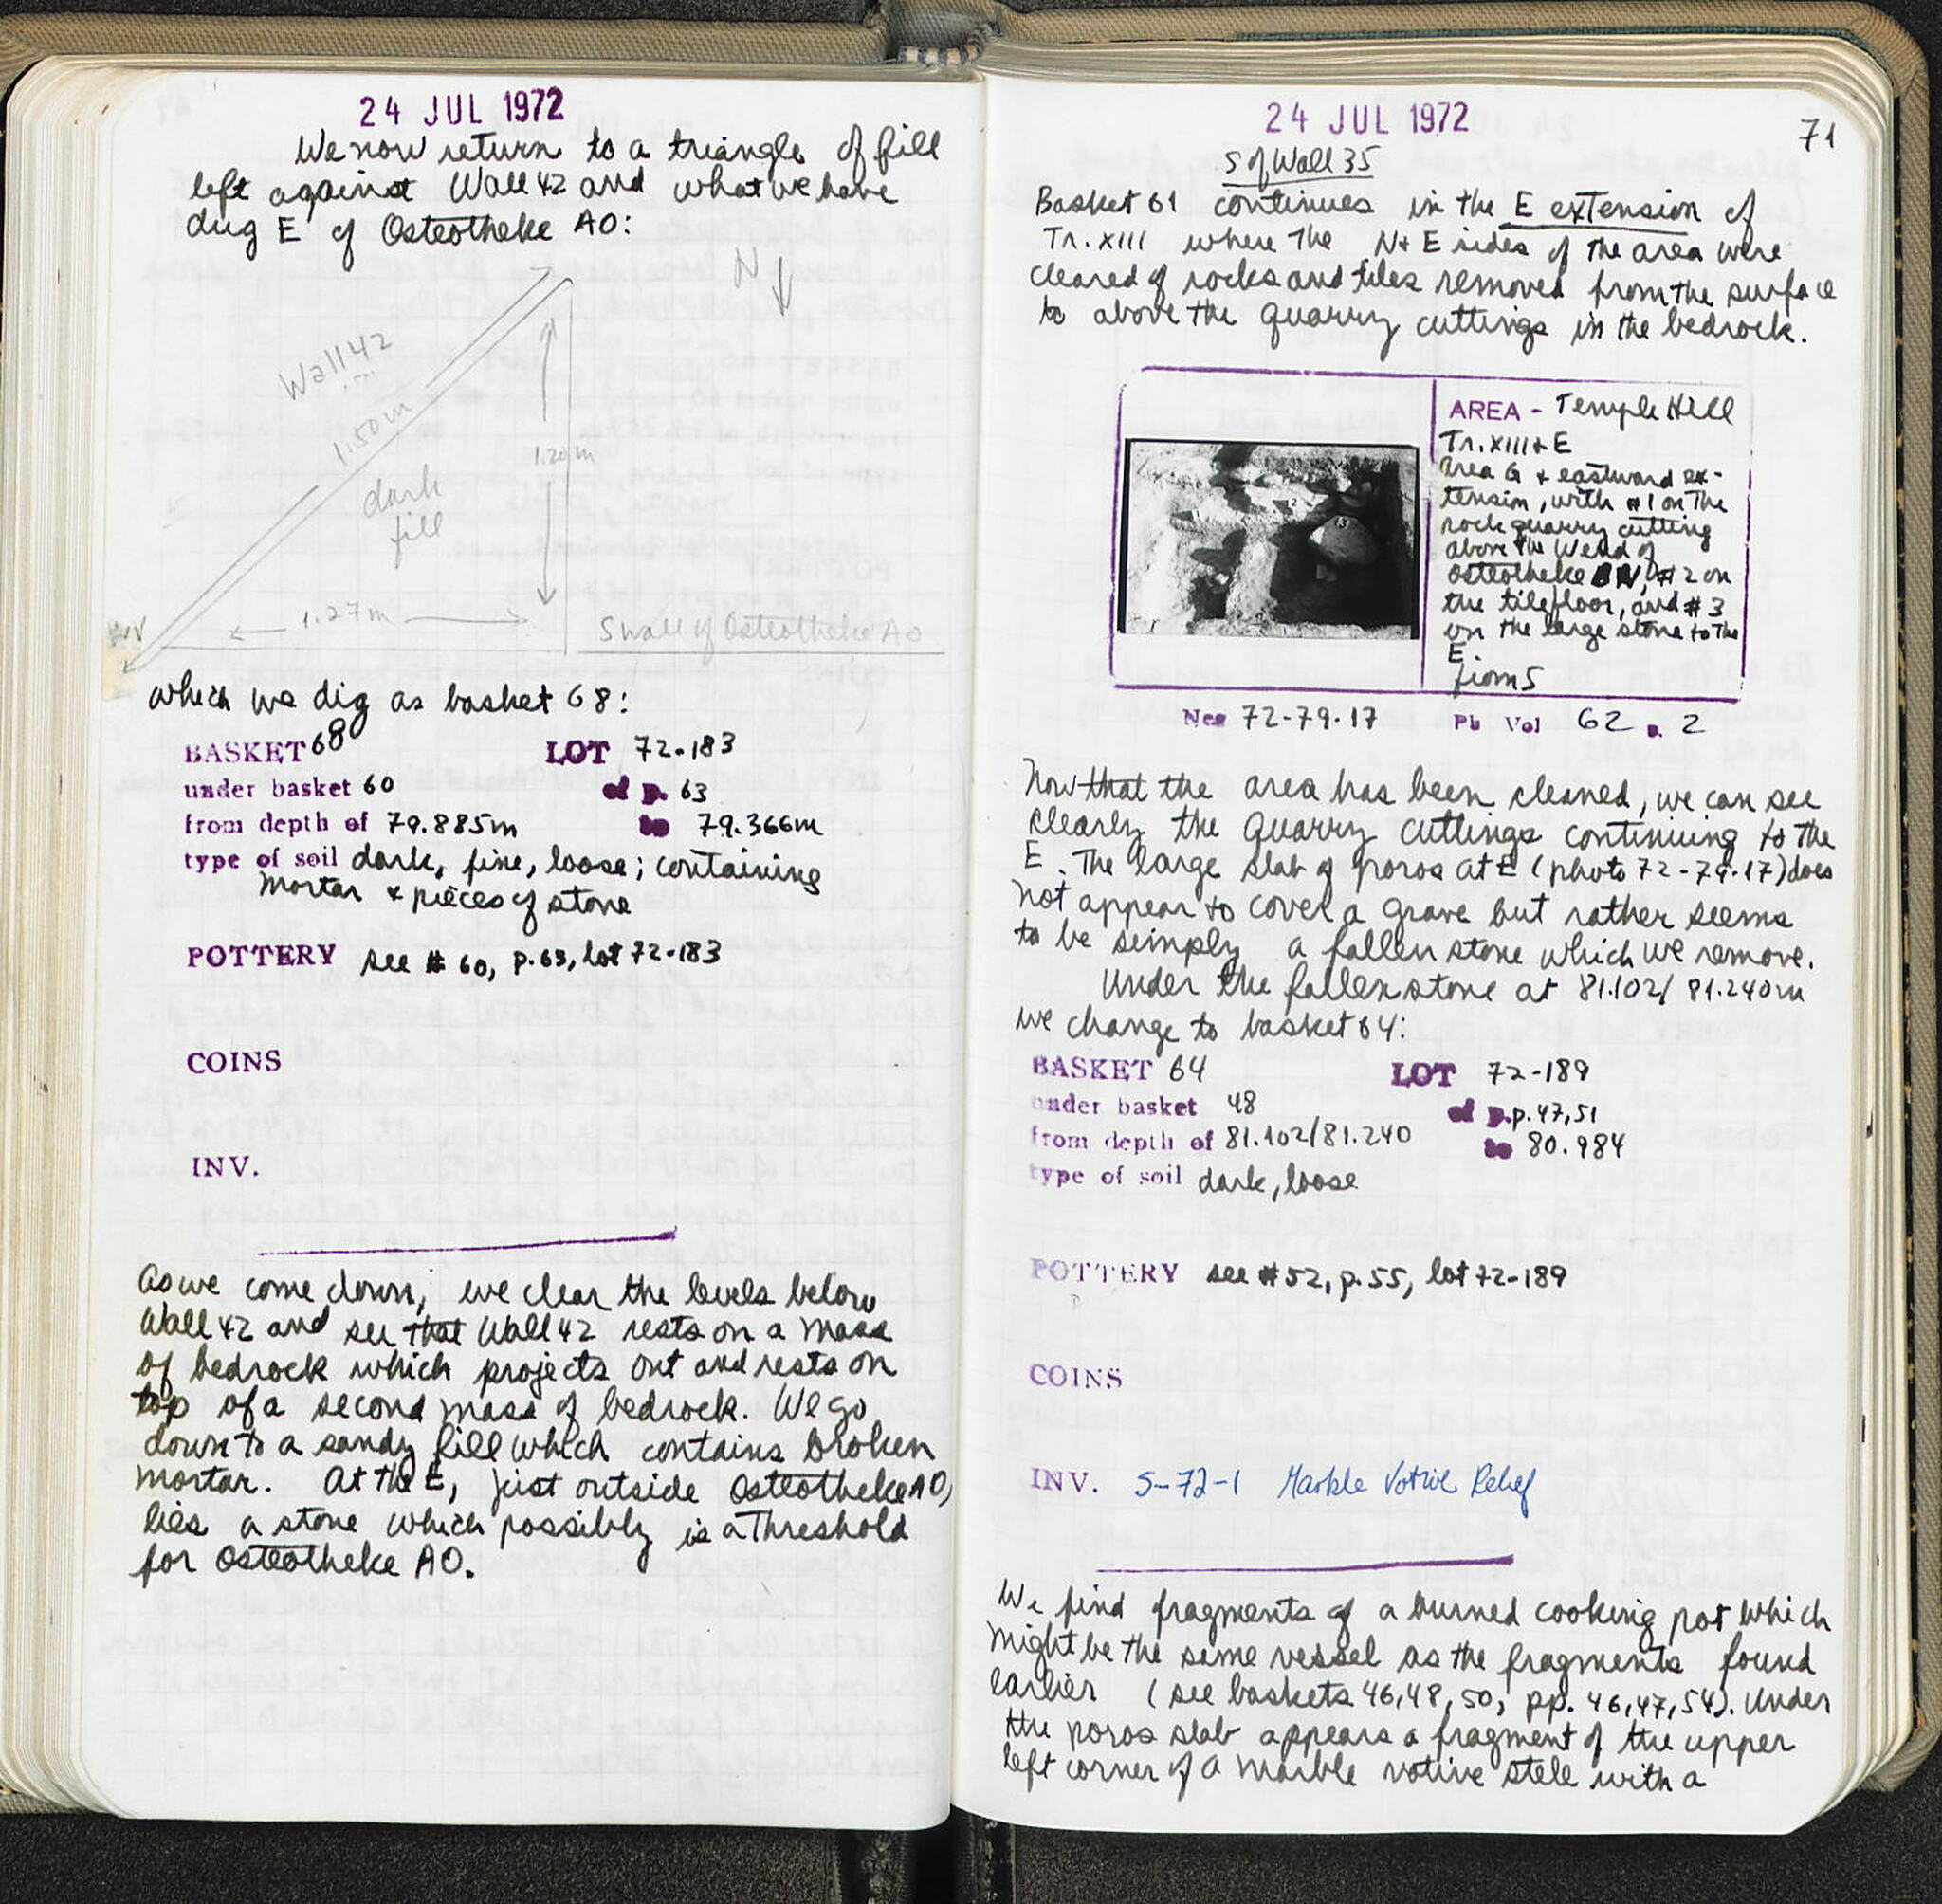 24 JUL 1972
We now return to a triangle of fill
left against Wall 42 and what we have
dug E of Osteotheke AO:
N
Wall 42
1.50m
1.20m
dark
fill
1.27m
S wall of Osteotheke AO
which we dig as basket 68:
BASKET 68 LOT 72-183
under basket 60 of p. 63
from depth of 79.885m to 79.366m
type of soil dark, fine, loose; containing
mortar & pieces of stone
POTTERY see # 60, p.63, lot 72-183
COINS
INV.
As we come down, we clear the levels below
Wall 42 and see that Wall 42 rests on a mass
of bedrock which projects out and rests on
top of a second mass of bedrock. We go
down to a sandy fill which contains broken
mortar. At the E, just outside Osteotheke AO,
lies a stone which possibly is a threshold
for Osteotheke AO.
24 JUL 1972
71
S of Wall 35
Basket 61 continues in the E extension of
Tr. XIII where the N & E sides of the area were
cleared of rocks and tiles removed from the surface
to above the quarry cuttings in the bedrock.
AREA - Temple Hill
Tr. XIII & E
Area G & eastward ex-
tension, with #1 on the
rock quarry cutting
above the W end of
Osteotheke N, #2 on
the tile floor, and #3
on the large stone to the
E.
from S
2
3
Neg 72-79-17 Ph Vol 62 p. 2
Now that the area has been cleaned, we can see
clearly the quarry cuttings continuing to the
E. The large slab of poros at E (photo 72-79-17) does
not appear to cover a grave but rather seems
to be simply a fallen stone which we remove.
Under the fallen stone at 81.102/81.240m
we change to basket 64:
BASKET 64 LOT 72-189
under basket 48 of p.p. 47,51
from depth of 81.102/81.240 to 80.984
type of soil dark, loose
POTTERY see #52, p.55, lot 72-189
COINS
INV. S-72-1 Marble Votive Relief
We find fragments of a burned cooking pot which
might be the same vessel as the fragments found
earlier (see baskets 46,48,50, pp. 46,47,54). Under
the poros slab appears a fragment of the upper
left corner of a marble votive stele with a